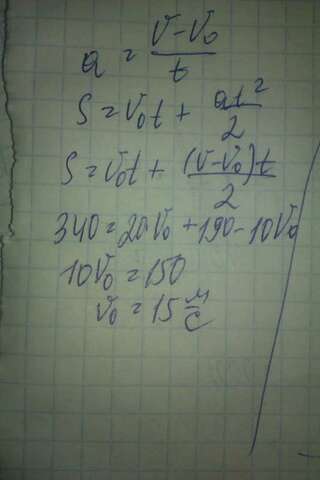 a = (v-v₀)/t
S = v₀t + at²/2
S = v₀t + (v-v₀)t/2
340 = 20v₀ + 190 - 10v₀
10v₀ = 150
v₀ = 15 м/с